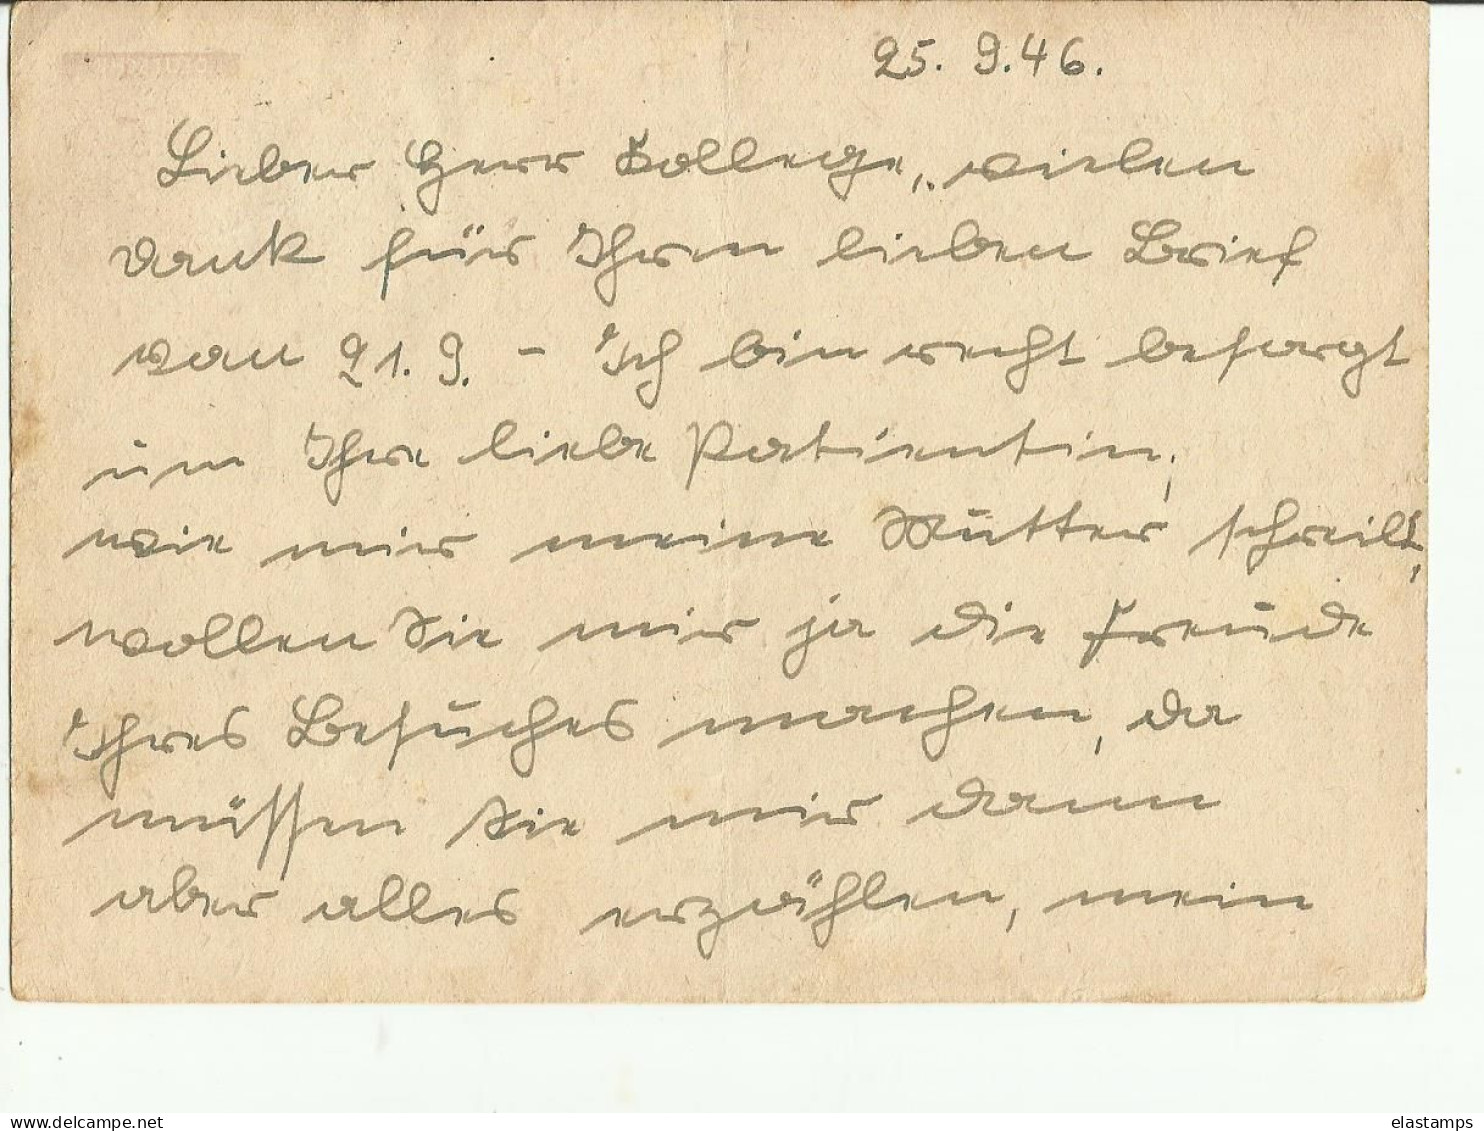 25. 9. 46.
Lieber Herr Kollege, vielen
Dank für Ihren lieben Brief
vom 21. 9. - Ich bin recht besorgt
um Ihre liebe Patientin,
wie mir meine Mutter schreibt,
wollen Sie mir ja die Freude
Ihres Besuches machen, da
müssen Sie mir dann
aber alles erzählen, mein
elastamps